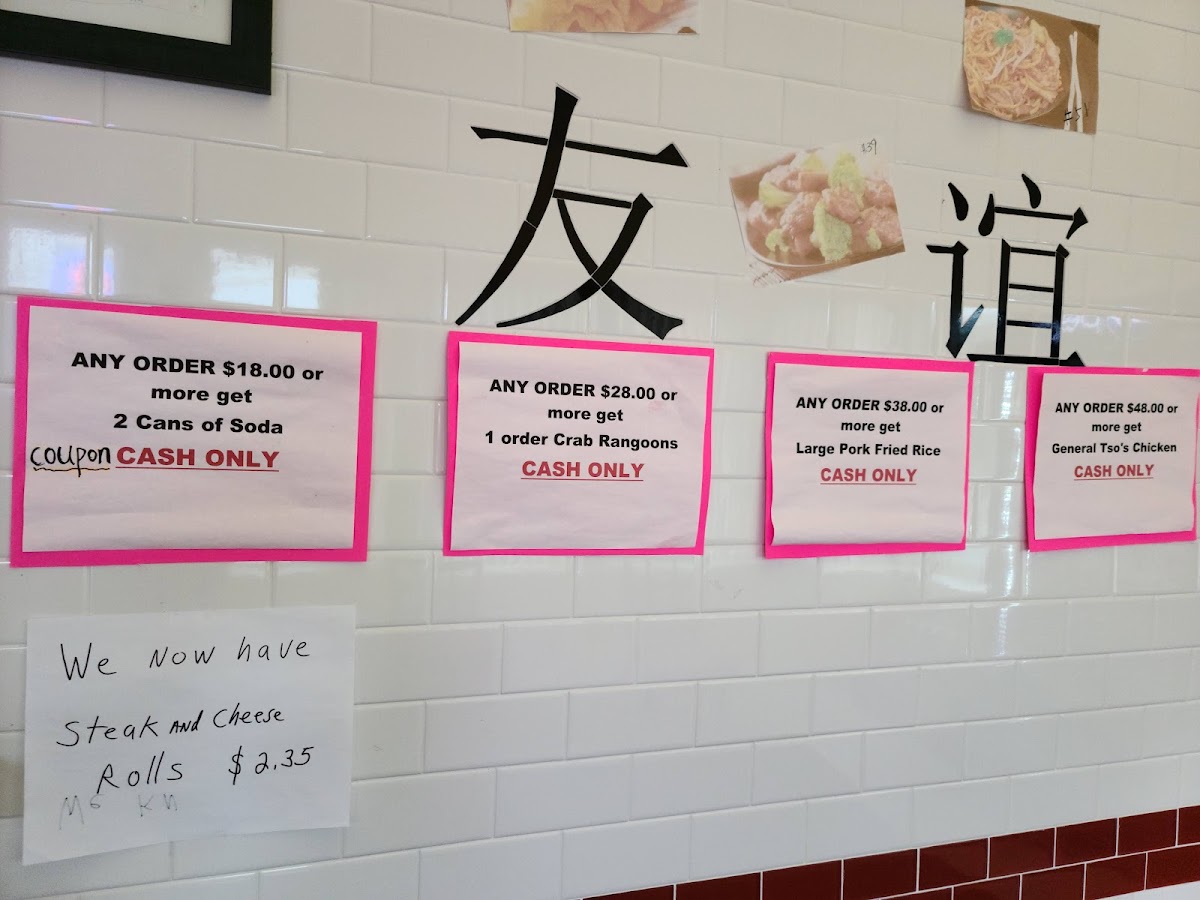 友誼
ANY ORDER $18.00 or
more get
2 Cans of Soda
coupon CASH ONLY
ANY ORDER $28.00 or
more get
1 order Crab Rangoons
CASH ONLY
ANY ORDER $38.00 or
more get
Large Pork Fried Rice
CASH ONLY
ANY ORDER $48.00 or
more get
General Tso's Chicken
CASH ONLY
We now have
Steak AND Cheese
Rolls $2.35